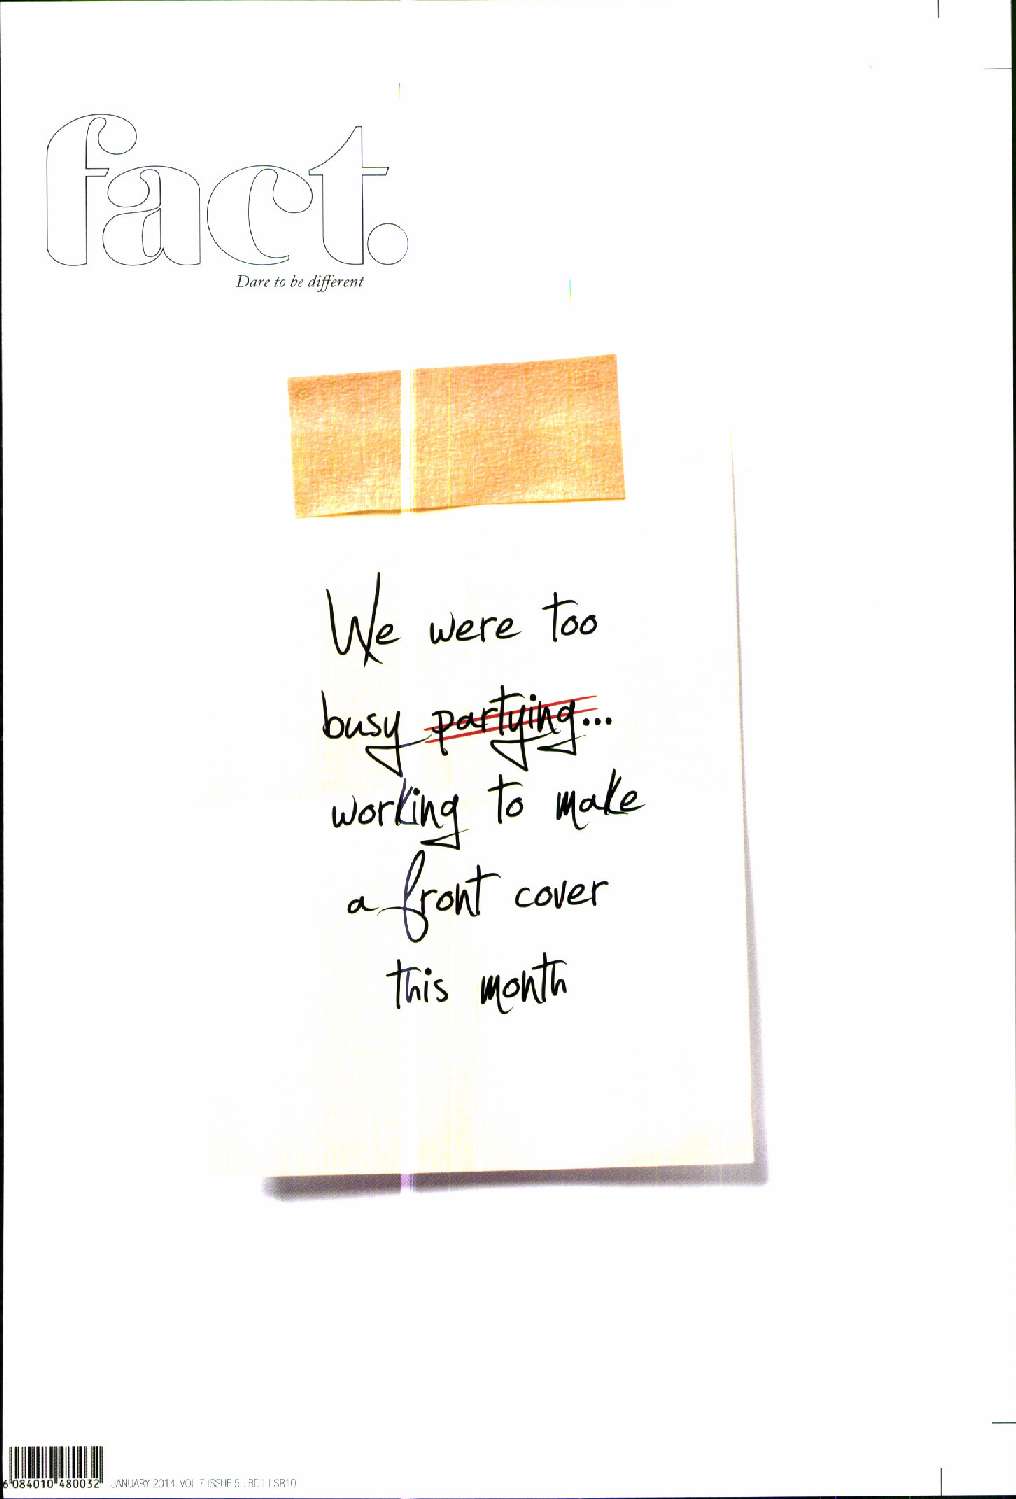 fact.
Dare to be different
We were too
busy partying...
working to make
a front cover
this month
6 084010 480032 JANUARY 2014 VOL 7 ISSUE 5 BD 1 | SR10